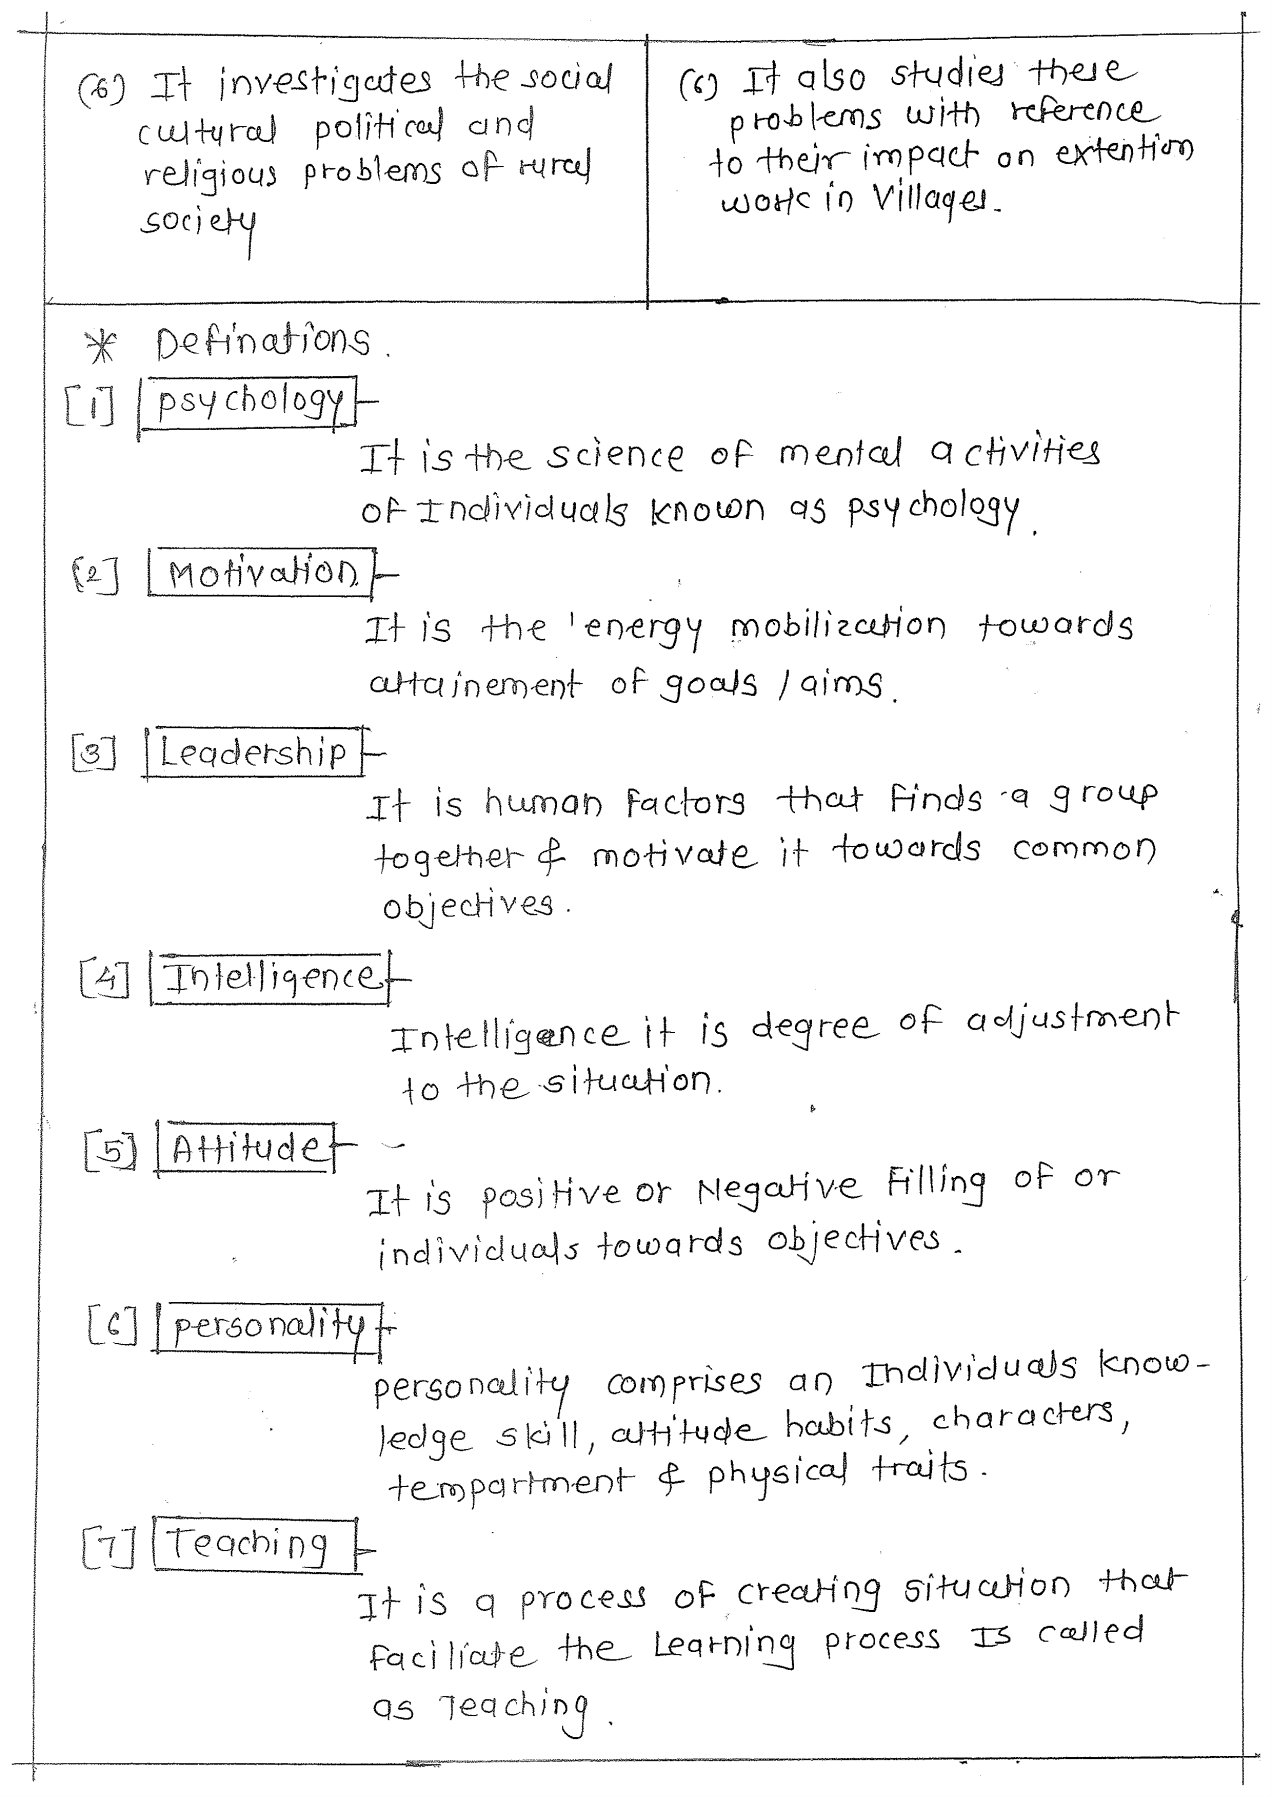 (6) It investigates the social
cultural political and
religious problems of rural
society
(6) It also studies these
problems with reference
to their impact on extention
work in Villages.
* Definations.
[1] psychology-
It is the science of mental activities
of Individuals known as psychology.
[2] Motivation-
It is the 'energy mobilization towards
attainement of goals / aims.
[3] Leadership-
It is human factors that finds a group
together & motivate it towards common
objectives.
[4] Intelligence-
Intelligence it is degree of adjustment
to the situation.
[5] Attitude-
It is positive or Negative Filling of or
individuals towards objectives.
[6] personality-
personality comprises an Individuals know-
ledge skill, attitude habits, characters,
tempartment & physical traits.
[7] Teaching-
It is a process of creating situation that
faciliate the Learning process Is called
as Teaching.